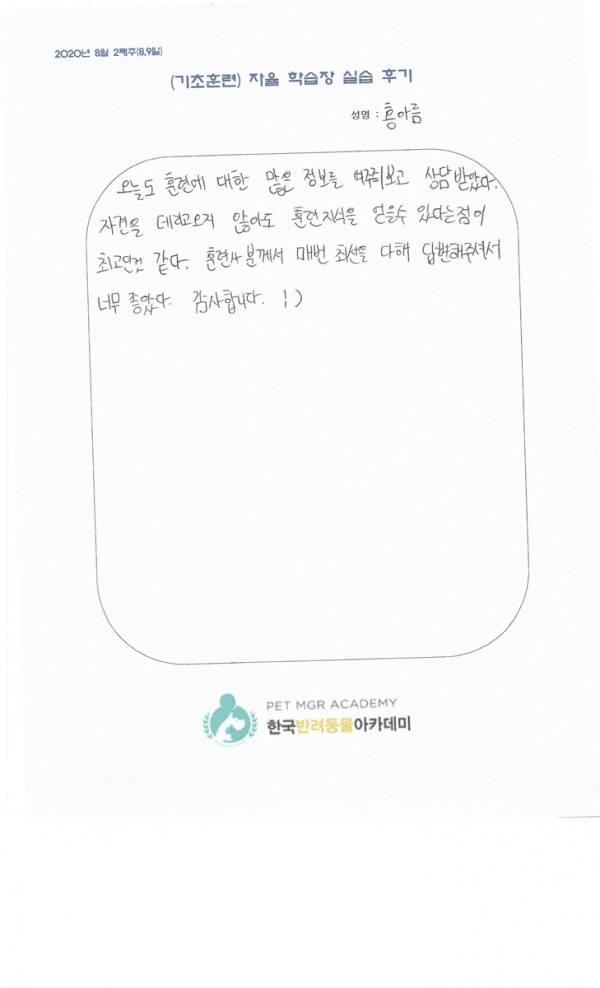 2020년 8월 2째주(8,9일)
(기초훈련) 자율 학습장 실습 후기
성명 : 홍아름
오늘도 훈련에 대한 많은 정보를 여쭈워보고 상담받았다.
자견을 데려오지 않아도 훈련지식을 얻을수 있다는점이
최고인것 같다. 훈련사 분께서 매번 최선을 다해 답변해주셔서
너무 좋았다. 감사합니다. :)
PET MGR ACADEMY
한국반려동물아카데미